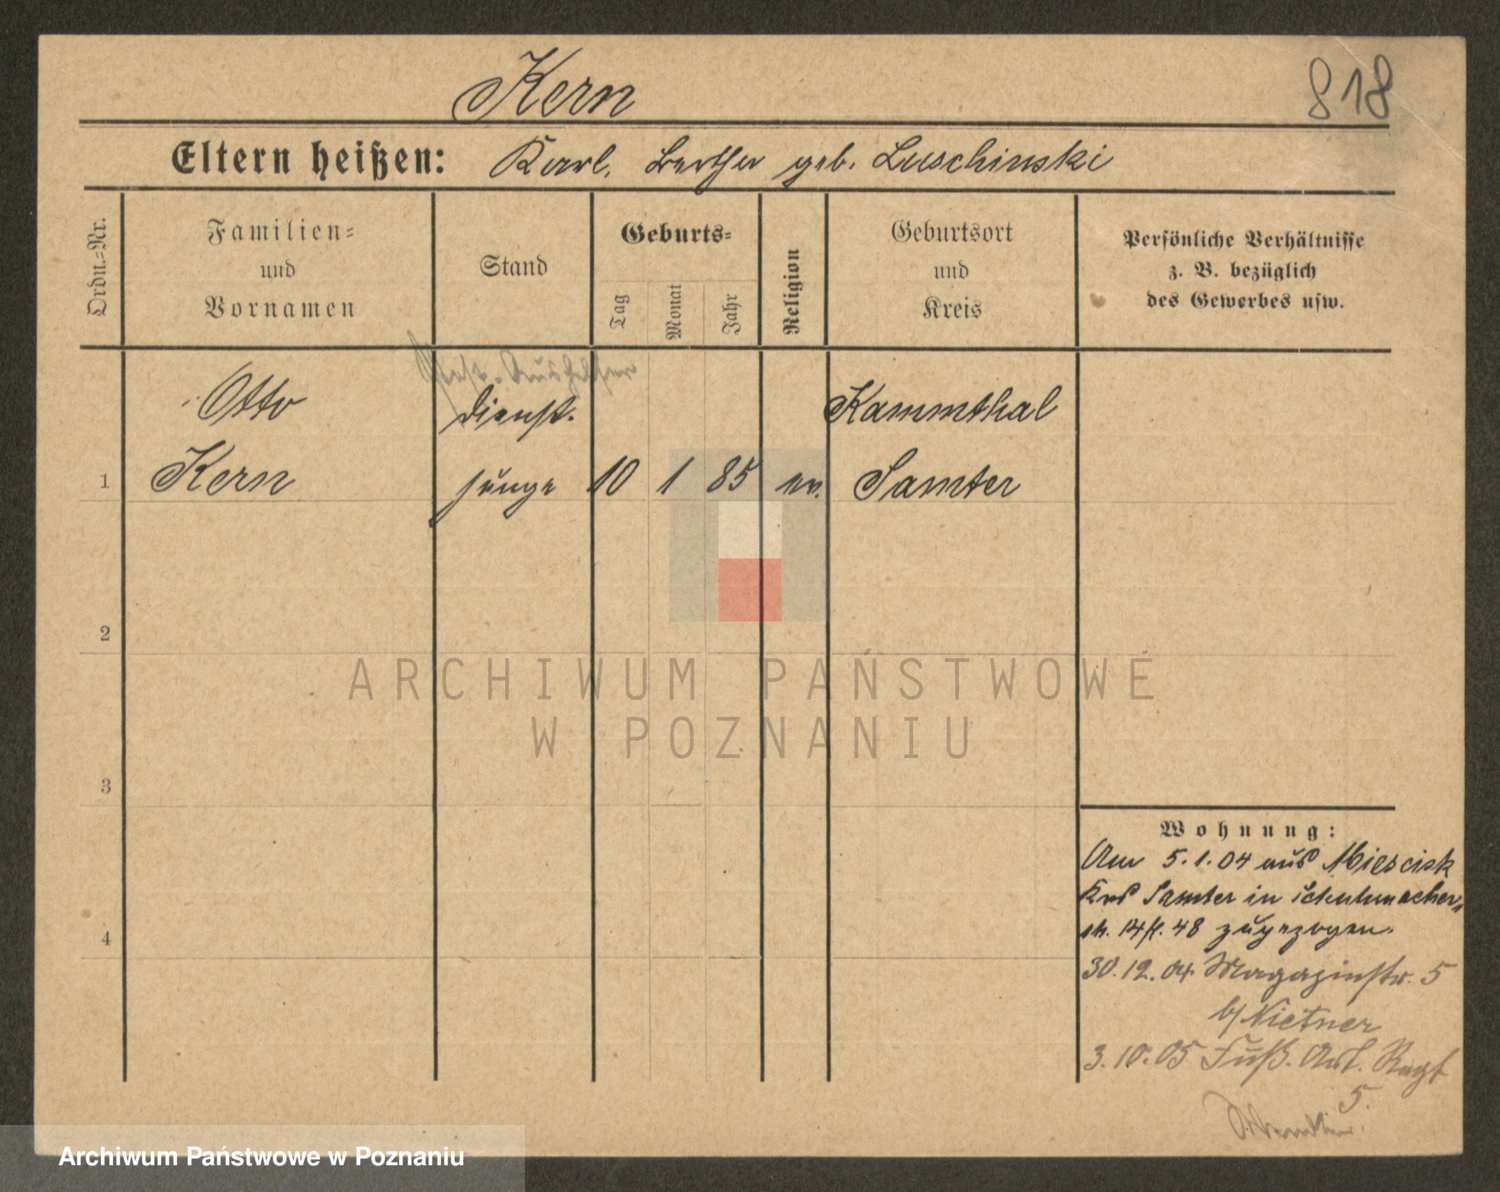 Kern
818
Eltern heißen: Karl, Bertha geb. Luschinski
Ordn.-Nr.
Familien-
und
Vornamen
Stand
Geburts-
Tag
Monat
Jahr
Religion
Geburtsort
und
Kreis
Persönliche Verhältnisse
z. B. bezüglich
des Gewerbes usw.
Post-Aushelfer
Otto
Dienst-
Kammthal
1
Kern
junge
10
1
85
ev.
Samter
2
ARCHIWUM PAŃSTWOWE
W POZNANIU
3
Wohnung:
Am 5.1.04 aus Miescisk
Krs Samter in Schuhmacher-
str. 14 48 zugezogen.
4
30.12.04 Magazinstr. 5
b/ Nietner
3.10.05 Fuß. Art. Regt
5.
Archiwum Państwowe w Poznaniu